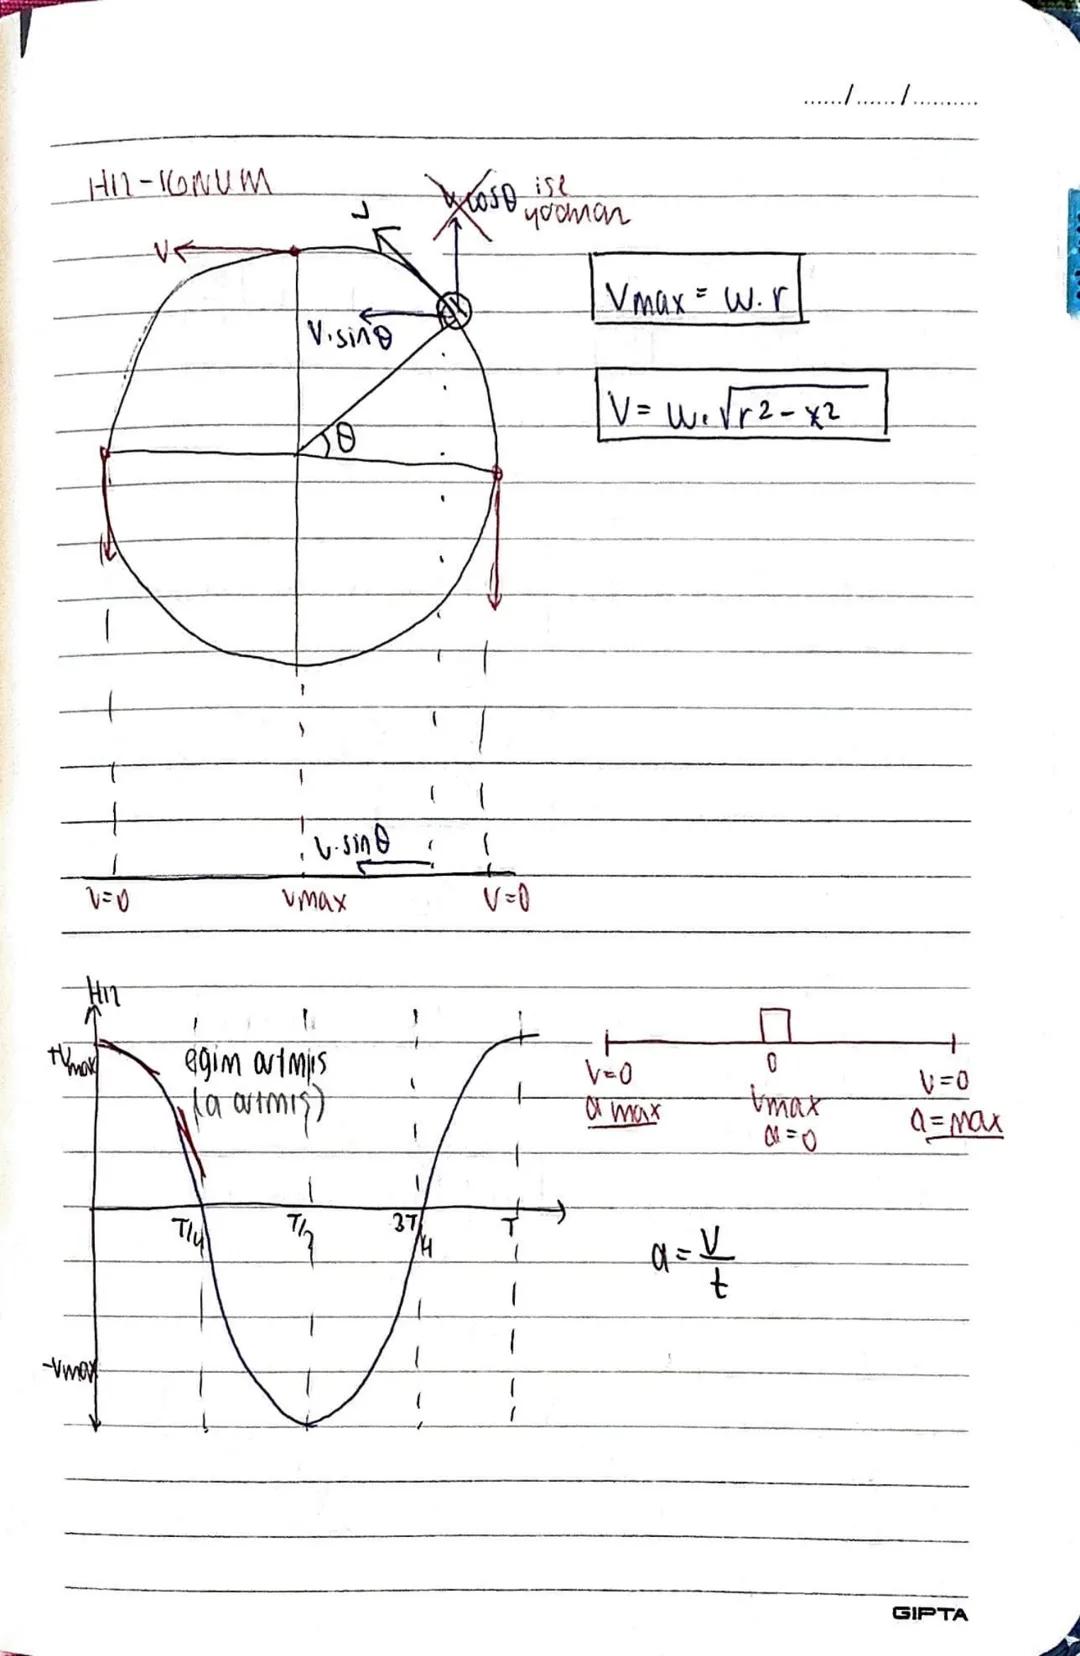 ....../....../..........
HIZ-KONUM
v cosθ ise
yaramaz
V
V
V.sinθ
θ
Vmax = w.r
V = w.√r2-x2
V.sinθ
V=0
Vmax
V=0
Hız
+Vmax
eğim artmış
(a artmış)
T/4
T/2
3T/4
T
-Vmax
0
V=0
a max
Vmax
a=0
V=0
a=max
a=V/t
GIPTA